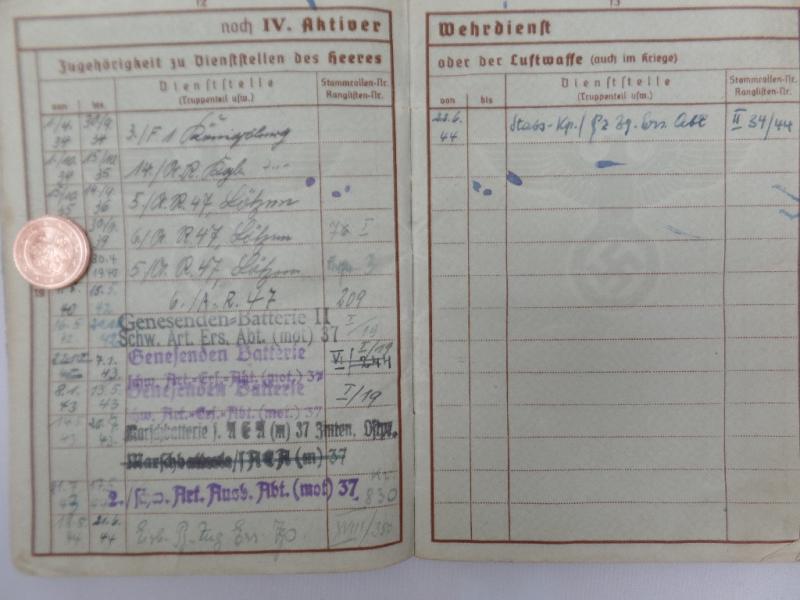 12
noch IV. Aktiver
Zugehörigkeit zu Dienststellen des Heeres
von bis Dienststelle (Truppenteil usw.) Stammrollen-Nr. Ranglisten-Nr.
1/4. 34 30/9. 34 3./F 1 Königsberg
1./10. 34 15/10. 35 14./A.R.
15/10. 35 14/9. 36 5./A.R.47, Lötzen
30/9. 39 6./A.R.47, Lötzen I
30.4. 1940 5./A.R.47, Lötzen 3
40 15.5. 42 6./A.R.47 209
16.5. 42 Genesenden-Batterie II I/19
Schw. Art. Ers. Abt. (mot) 37
7.1. 43 Genesenden Batterie I/19
schw. Art.-Ers.-Abt. (mot.) 37 VI/244
8.1. 43 13.5. 43 Genesenden Batterie I/19
schw. Art.-Ers.-Abt. (mot.) 37
14.5. 43 20.7. 43 Marschbatterie s. A E A (m) 37 Zinten, Ostpr.
Marschbatterie/ s A E A (m) 37
21.7. 43 17.5. 2./ Art. Ausb. Abt. (mot) 37. 830
18.5. 44 21.6. 44 Ers. XVIII/350
13
Wehrdienst
oder der Luftwaffe (auch im Kriege)
von bis Dienststelle (Truppenteil usw.) Stammrollen-Nr. Ranglisten-Nr.
22.6. 44 Stabs-Kp./ Ers. Abt II 34/44